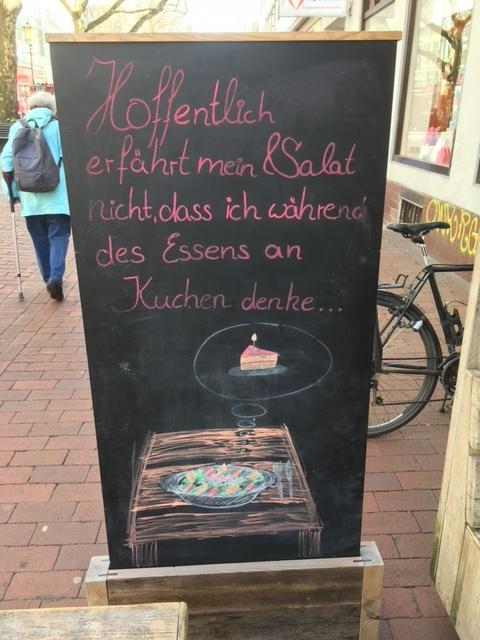 Hoffentlich
erfährt mein Salat
nicht, dass ich während
des Essens an
Kuchen denke...